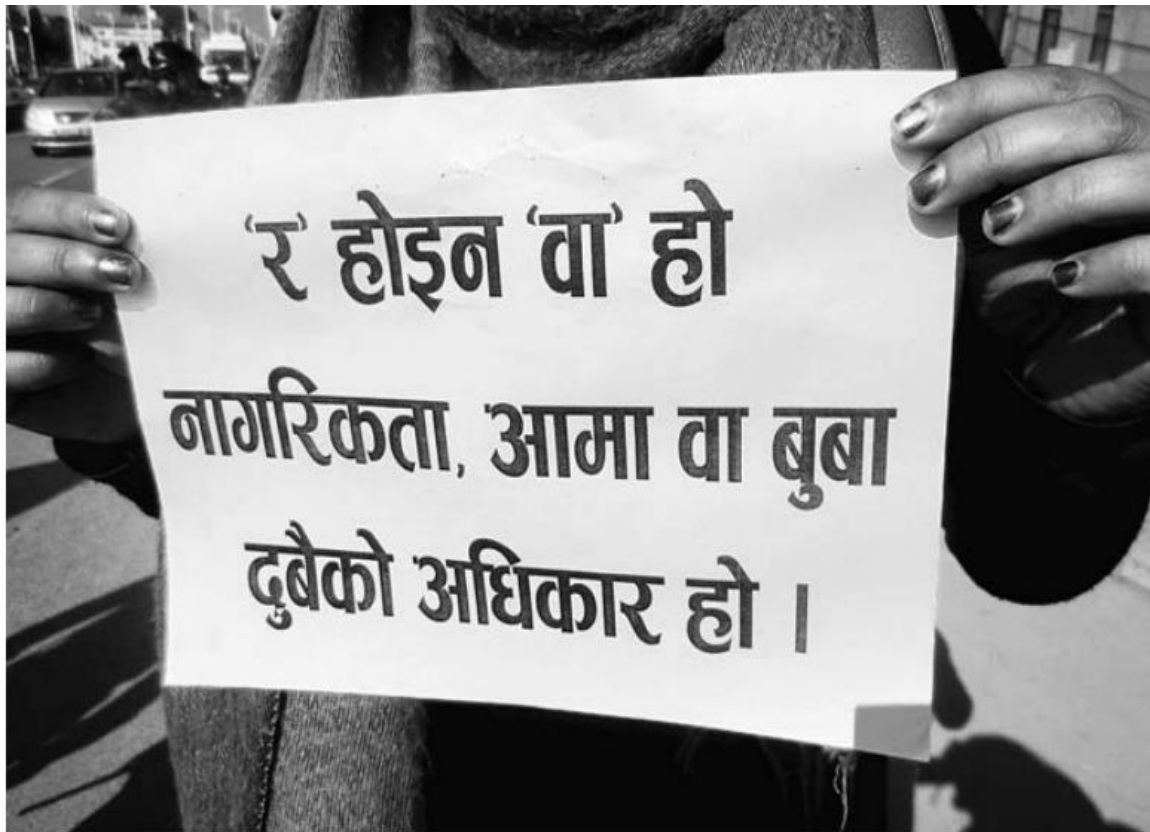 'र' होइन 'वा' हो
नागरिकता, आमा वा बुबा
दुबैको अधिकार हो ।